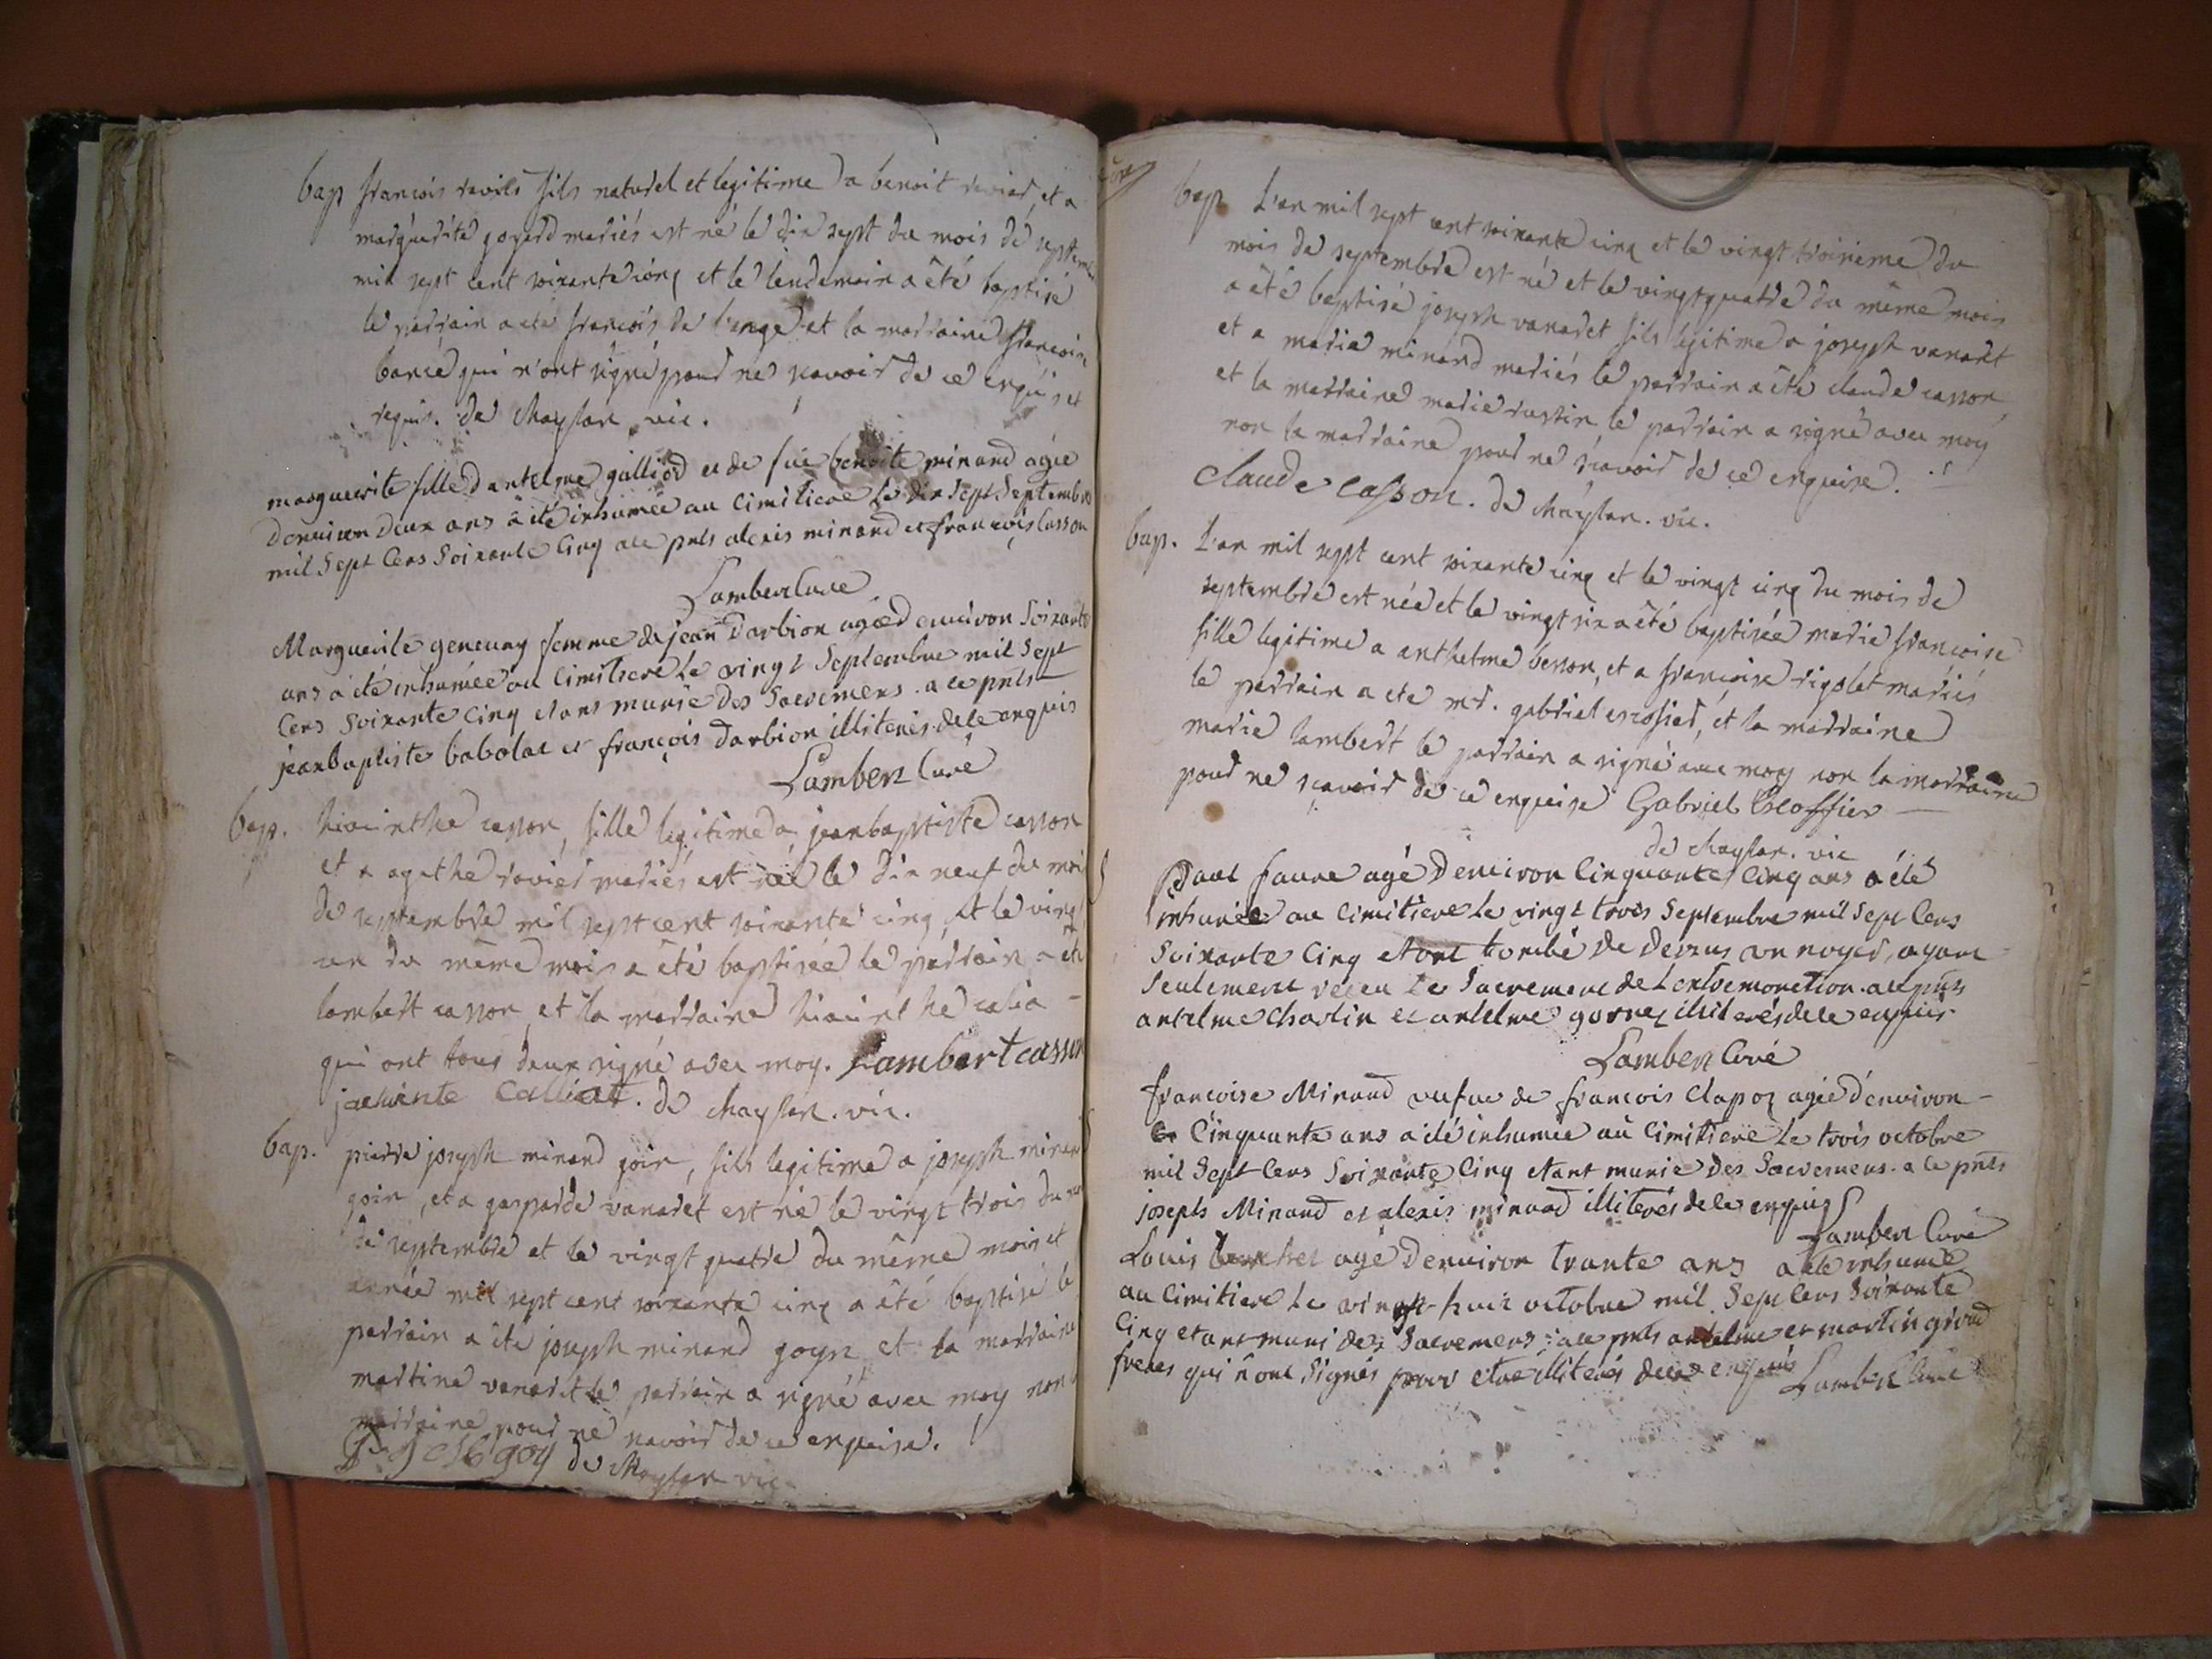 bap françois ravies fils naturel et legitime a benoit ravier, et a
marguerite goyerd mariés est né le dix sept du mois de septembre
mil sept cent soixante cinq et le lendemain a été baptisé
le parrain a été françois de l'enge et la marraine françoise
qui n'ont signé pour ne scavoir de ce enquis et
requis. de chaylan vic.
marguerite fille d antelme galliod et de fue benoite minand agée
d'environ deux ans a été inhumée au cimitiere le dix sept septembre
mil sept cens soixante cinq a ce pnts alexis minand et françois casson
Lambert curé
Marguerite genevay femme de jean Darbion agée d'environ soixante
ans a été inhumée au cimitiere le vingt septembre mil sept
cens soixante cinq etans munie des sacremens. a ce pnts
jean baptiste babolat et françois darbion illiterés de ce enquis
Lambert curé
bap. hiacinthe casson, fille legitime a jean baptiste casson
et a agathe ravier mariés est née le dix neuf du moi
de septembre mil sept cent soixante cinq, et le vingt
un du même mois a été baptisée le parrain a été
lambert casson et la marraine hiacinthe calia
qui ont tous deux signé avec moy. Lambert casson
jacinte calliat. de chaylan. vic.
bap. pierre joseph minand goin, fils legitime a joseph minand
goin, et a gasparde vanaret est né le vingt trois du
de septembre et le vingt quatre du même mois et
année mil sept cent soixante cinq a été baptisé le
parrain a été joseph minand goyn et la marraine
martine vanaret le parrain a signé avec moy non
marraine pour ne scavoir de ce enquise.
goy de chaylan vic
bap L'an mil sept cent soixante cinq et le vingt troisieme du
mois de septembre est né et le vingt quatre du même mois
a été baptisé joseph vanaret fils légitime a joseph vanaret
et a marie minand mariés le parrain a été claude casson,
et la marraine marie rustin le parrain a signé avec moy
non la marraine pour ne scavoir de ce enquise.
claude casson. de chaylan. vic.
bap. L'an mil sept cent soixante cinq et le vingt cinq du mois de
septembre est née et le vingt six a été baptisée marie françoise
fille legitime a anthelme besson, et a françoise rigolet mariés
le parrain a été mr. gabriel escofier, et la marraine
marie lambert le parrain a signé avec moy non la marraine
pour ne scavoir de ce enquise Gabriel Escoffier
de chaylan. vic
Paul faure agé denviron cinquante cinq ans a été
inhumée au cimitiere le vingt trois septembre mil sept cens
soixante cinq etant tombé de dessus un noyer, ayant
seulement receu le sacrement de Lextremonction. a ce pnts
antelme charlin et antelme gornez illiterés de ce enquis
Lambert curé
françoise Minand veufue de françois Clapoz agée d'environ
cinquante ans a été inhumée au cimitiere le trois octobre
mil sept cens soixante cinq etant munie des sacremens. a ce pnts
joseph Minand et alexis minand illiterés de ce enquis
Lambert curé
Louis agé denviron trante ans a été inhumé
au cimitiere le vingt huit octobre mil sept cens soixante
cinq etant muni des sacremens; a ce pnts antelme et martin girod
freres qui n'ont signés pour etre illiterés de ce enquis Lambert curé